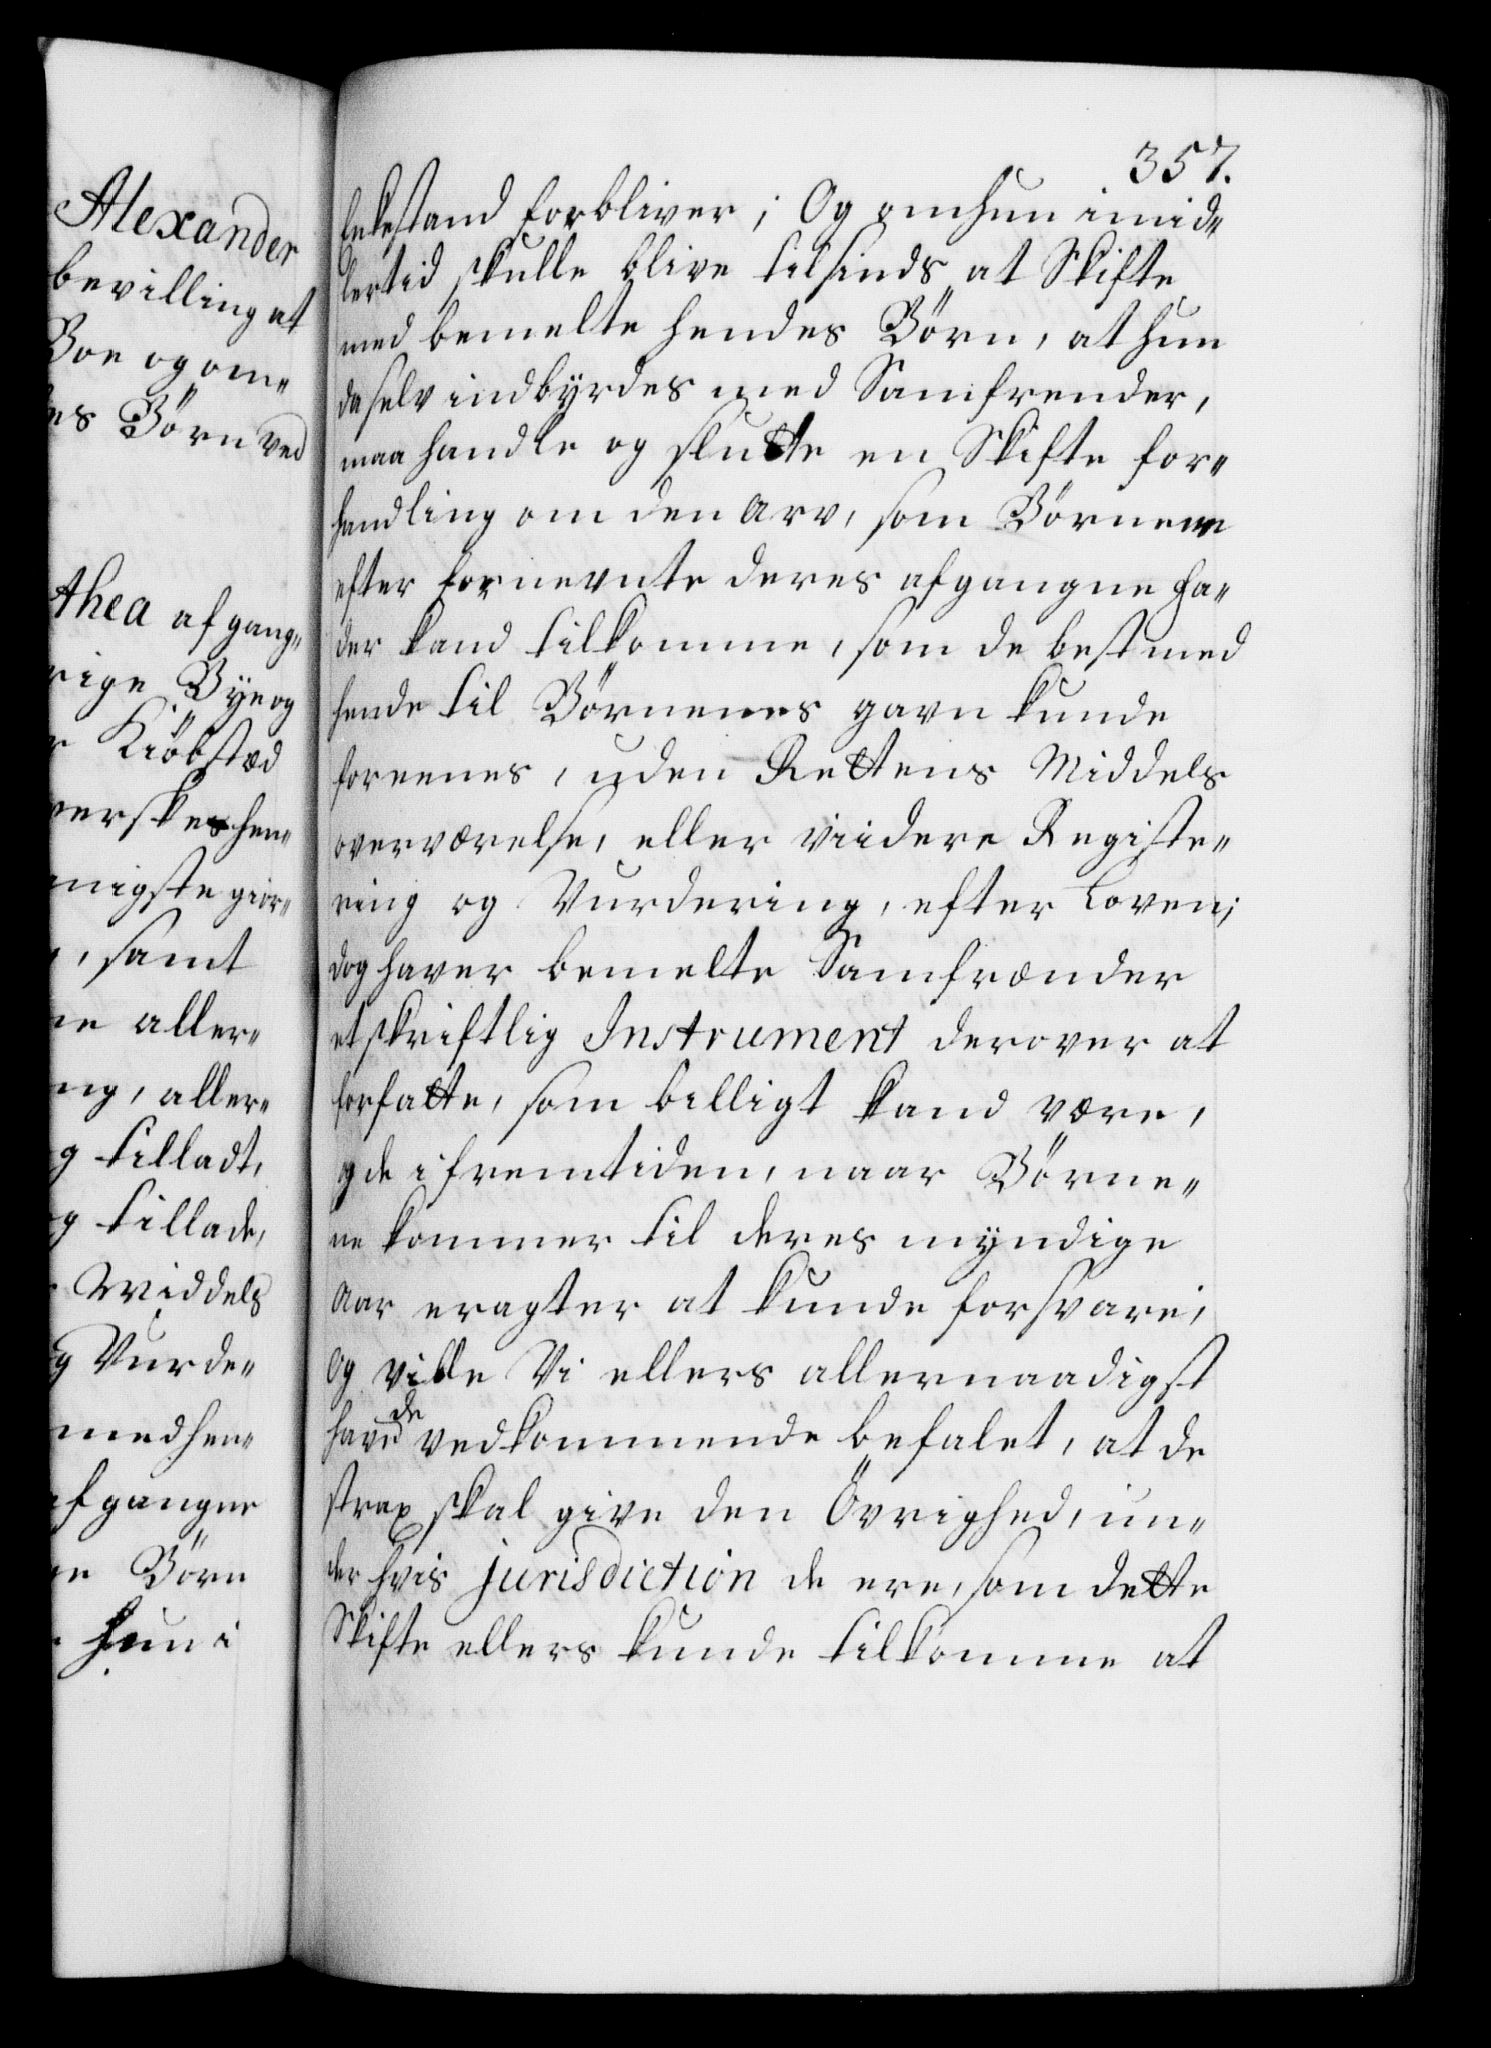 Alexander
bevilling at
Boe og om„
es Börn ved
thea afgang„
rige Bye og
r Kiöbstæd
verskes hen„
nigste giör„
, samt
ne aller„
ng, aller„
g tilladt,
g tillade,
Middels
g Vurde„
med hen„
afgangne
ne Börn
hun i
357.
Enkestand forbliver; Og om hun imid„
lertid skulle blive tilsinds at Skifte
med bemelte hendes Börn, at hun
da selv indbÿrdes med Samfrender,
maa handle og slutte en Skifte for„
handling om den Arv, som Börnene
efter fornevnte deres afgangne Fa„
der kand tilkomme, som de best med
hende til Börnenes gavn kunde
foreenes, uden Rettens Middels
overværelse, eller viidere Registe„
ring og Vurdering, efter Loven;
dog haver bemelte Samfrænder
et skriftlig Instrument derover at
forfatte, som billigt kand være,
og de i fremtiden, naar Börne„
ne kommer til deres mÿndige
Aar eragter at kunde forsvare;
Og ville Vi ellers allernaadigst
have de vedkommende befalet, at de
strax skal give den Övrighed, un„
der hvis jurisdiction de ere, som dette
Skifte ellers kunde tilkomme at